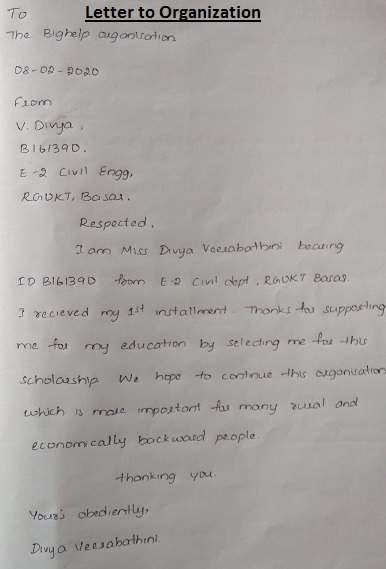 Letter to Organization
To
The Bighelp organisation
08-02-2020
From
V. Divya,
B161390.
E-2 Civil Engg,
RGUKT, Basar.
Respected,
I am Miss Divya Veerabathini bearing
ID B161390 from E-2 Civil dept, RGUKT Basar.
I recieved my 1st installment. Thanks for supporting
me for my education by selecting me for this
scholarship We hope to continue this organisation
which is more important for many rural and
economically backward people.
thanking you.
Your's obediently,
Divya Veerabathini.